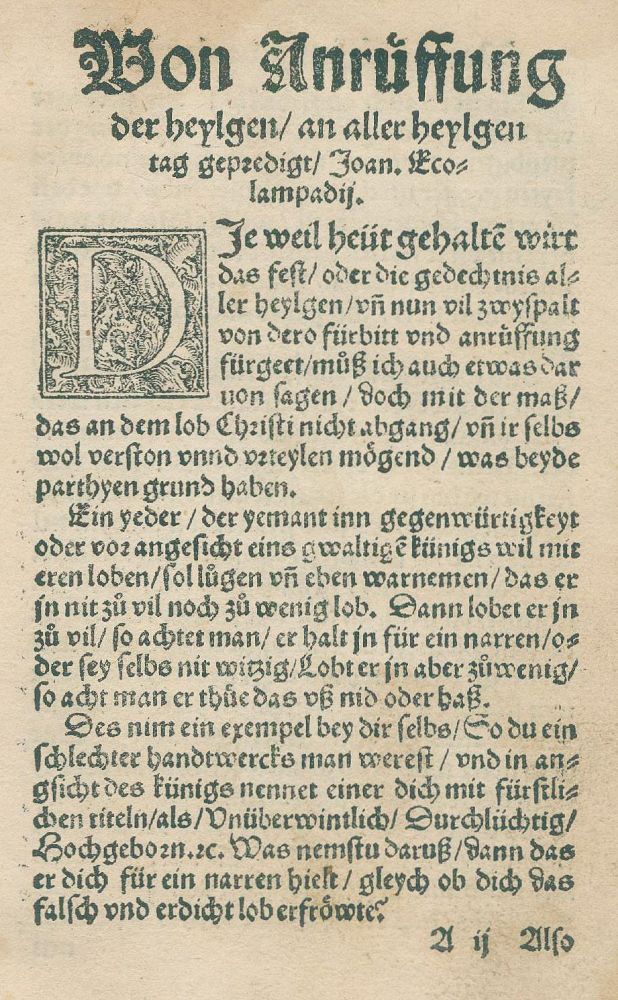 Von Anrüffung
der heylgen/ an aller heylgen
tag gepredigt/ Joan. Eco⸗
lampadij.
DJe weil heüt gehaltẽ wirt
das fest/ oder die gedechtnis al⸗
ler heylgen/ vñ nun vil zwyspalt
von dero fürbitt vnd anrüffung
fürgeet/ můß ich auch etwas dar
uon sagen / doch mit der maß/
das an dem lob Christi nicht abgang/ vñ ir selbs
wol verston vnnd vrteylen mögend / was beyde
parthyen grund haben.
Ein yeder / der yemant inn gegenwürtigkeyt
oder vor angesicht eins gwaltigẽ künigs wil mit
eren loben/ sol lůgen vñ eben warnemen/ das er
jn nit zů vil noch zů wenig lob. Dann lobet er jn
zů vil/ so achtet man/ er halt jn für ein narren/ o⸗
der sey selbs nit witzig/ Lobt er jn aber zů wenig/
so acht man er thüe das vß nid oder haß.
Des nim ein exempel bey dir selbs/ So du ein
schlechter handtwercks man werest / vnd in an⸗
gsicht des künigs nennet einer dich mit fürstli⸗
chen titeln/ als/ Vnüberwintlich/ Durchlüchtig/
Hochgeborn.ꝛc. Was nemstu daruß/ dann das
er dich für ein narren hielt / gleych ob dich das
falsch vnd erdicht lob erfröwte?
A ij Also